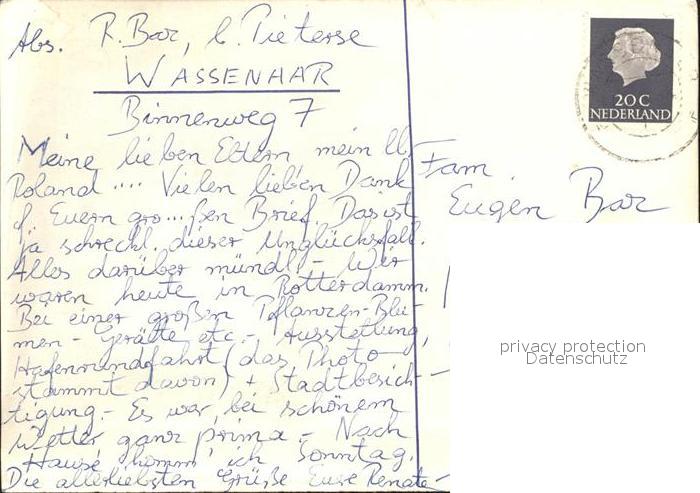 Abs. R. Bar, b. Pieterse
WASSENAAR
Binnenweg 7
Meine lieben Eltern mein ll.
Roland .... Vielen lieben Dank
f. Euern gro...ßen Brief. Das ist
ja schreckl. dieser Unglücksfall.
Alles darüber mündl. - Wir
waren heute in Rotterdamm.
Bei einer großen Pflanzen-Blu-
men - Geräte etc. - Ausstellung,
Hafenrundfahrt (das Photo
stammt davon) + Stadtbesich-
tigung. - Es war bei schönem
Wetter ganz prima. - Nach
Hause komm' ich Sonntag.
Die allerliebsten Grüße Eure Renate
Fam
Eugen Bar
20 C
NEDERLAND
privacy protection
Datenschutz